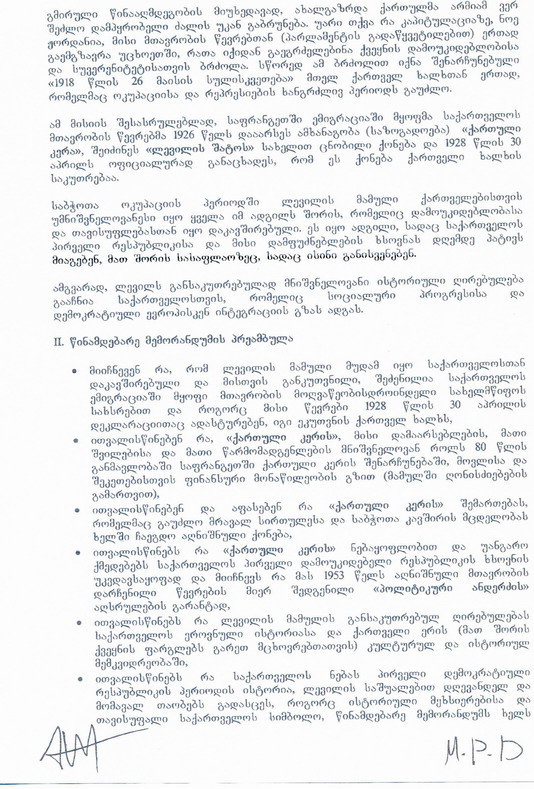 გმირული წინააღმდეგობის მიუხედავად, ახალგაზრდა ქართულმა არმიამ ვერ
შეძლო დამპყრობელი ძალის უკან გაბრუნება. უარი თქვა რა კაპიტულაციაზე, ნოე
ჟორდანია, მისი მთავრობის წევრებთან (პარლამენტის გადაწყვეტილებით) ერთად
გაემგზავრა უცხოეთში, რათა იქიდან გაეგრძელებინა ქვეყნის დამოუკიდებლობისა
და სუვერენიტეტისათვის ბრძოლა. სწორედ ამ ბრძოლით იქნა შენარჩუნებული
«1918 წლის 26 მაისის სულისკვეთება» მთელ ქართველ ხალხთან ერთად,
რომელმაც ოკუპაციისა და რეპრესიების ხანგრძლივ პერიოდს გაუძლო.
ამ მისიის შესასრულებლად, საფრანგეთში ემიგრაციაში მყოფმა საქართველოს
მთავრობის წევრებმა 1926 წელს დააარსეს ამხანაგობა (საზოგადოება) «ქართული
კერა», შეიძინეს «ლევილის შატოს» სახელით ცნობილი ქონება და 1928 წლის 30
აპრილს ოფიციალურად განაცხადეს, რომ ეს ქონება ქართველი ხალხის
საკუთრებაა.
საბჭოთა ოკუპაციის პერიოდში ლევილის მამული ქართველებისთვის
უმნიშვნელოვანესი იყო ყველა იმ ადგილს შორის, რომელიც დამოუკიდებლობასა
და თავისუფლებასთან იყო დაკავშირებული. ეს იყო ადგილი, სადაც საქართველოს
პირველი რესპუბლიკისა და მისი დამფუძნებლების ხსოვნას დღემდე პატივს
მიაგებენ, მათ შორის სასაფლაოზეც, სადაც ისინი განისვენებენ.
ამგვარად, ლევილს განსაკუთრებულად მნიშვნელოვანი ისტორიული ღირებულება
გააჩნია საქართველოსთვის, რომელიც სოციალური პროგრესისა და
დემოკრატიული ევროპისკენ ინტეგრაციის გზას ადგას.
II. წინამდებარე მემორანდუმის პრეამბულა
• მიიჩნევენ რა, რომ ლევილის მამული მუდამ იყო საქართველოსთან
დაკავშირებული და მისთვის განკუთვნილი, შეძენილია საქართველოს
ემიგრაციაში მყოფი მთავრობის მოღვაწეობისდროინდელი სახელმწიფოს
სახსრებით და როგორც მისი წევრები 1928 წლის 30 აპრილის
დეკლარაციითაც ადასტურებენ, იგი ეკუთვნის ქართველ ხალხს,
• ითვალისწინებენ რა, «ქართული კერის», მისი დამაარსებლების, მათი
შვილებისა და მათი წარმომადგენლების მნიშვნელოვან როლს 80 წლის
განმავლობაში საფრანგეთში ქართული კერის შენარჩუნებაში, მოვლისა და
შეკეთებისთვის ფინანსური მონაწილეობის გზით (მამულში ღონისძიებების
გამართვით),
• ითვალისწინებენ და აფასებენ რა «ქართული კერის» შემართებას,
რომელმაც გაუძლო მრავალ სირთულესა და საბჭოთა კავშირის მცდელობას
ხელში ჩაეგდო აღნიშნული ქონება,
• ითვალისწინებს რა «ქართული კერის» ნებაყოფლობით და უანგარო
ქმედებებს საქართველოს პირველი დამოუკიდებელი რესპუბლიკის ხსოვნის
უკვდავსაყოფად და მიიჩნევს რა მას 1953 წელს აღნიშნული მთავრობის
დარჩენილი წევრების მიერ შედგენილი «პოლიტიკური ანდერძის»
აღსრულების გარანტად,
• ითვალისწინებს რა ლევილის მამულის განსაკუთრებულ ღირებულებას
საქართველოს ეროვნული ისტორიასა და ქართველი ერის (მათ შორის
ქვეყნის ფარგლებს გარეთ მცხოვრებთათვის) კულტურულ და ისტორიულ
მემკვიდრეობაში,
• ითვალისწინებს რა საქართველოს ნებას პირველი დემოკრატიული
რესპუბლიკის პერიოდის ისტორია, ლევილის საშუალებით დღევანდელ და
მომავალ თაობებს გადასცეს, როგორც ისტორიული მეხსიერებისა და
თავისუფალი საქართველოს სიმბოლო, წინამდებარე მემორანდუმს ხელს
M.P.D